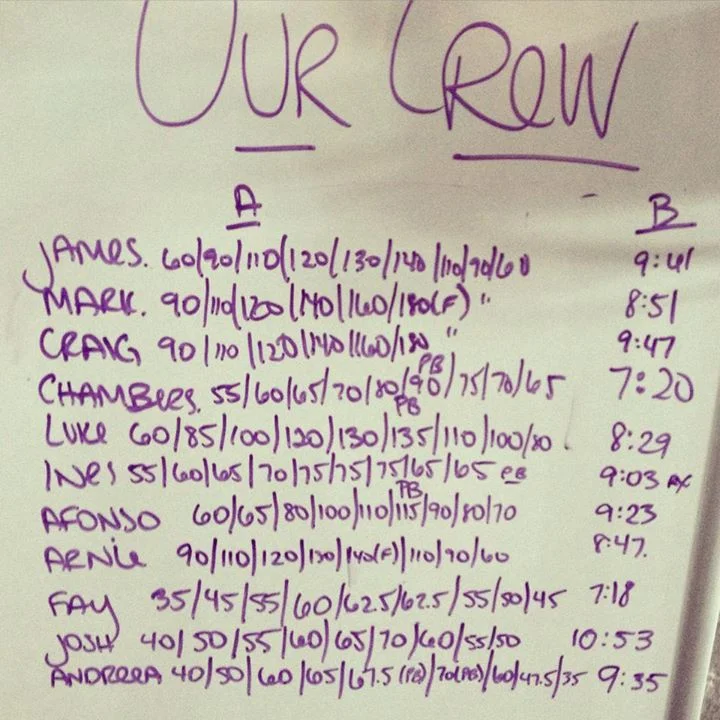 OUR CREW
A B
JAMES. 60/90/110/120/130/140/110/90/60 9:41
MARK. 90/110/120/140/160/180(F) " 8:51
CRAIG 90/110/120/140/160/180 " 9:47
PB
CHAMBERS. 55/60/65/70/80/90/75/70/65 7:20
PB
LUKE 60/85/100/120/130/135/110/100/80. 8:29
INES 55/60/65/70/75/75/75/65/65 PB 9:03 RX
PB
AFONSO 60/65/80/100/110/115/90/80/70 9:23
ARNIE 90/110/120/130/140(F)/110/90/60 8:47.
FAY 35/45/55/60/62.5/62.5/55/50/45 7:18
JOSH 40/50/55/60/65/70/60/55/50 10:53
ANDREEA 40/50/60/65/67.5(PB)/70(PB)/60/47.5/35 9:35